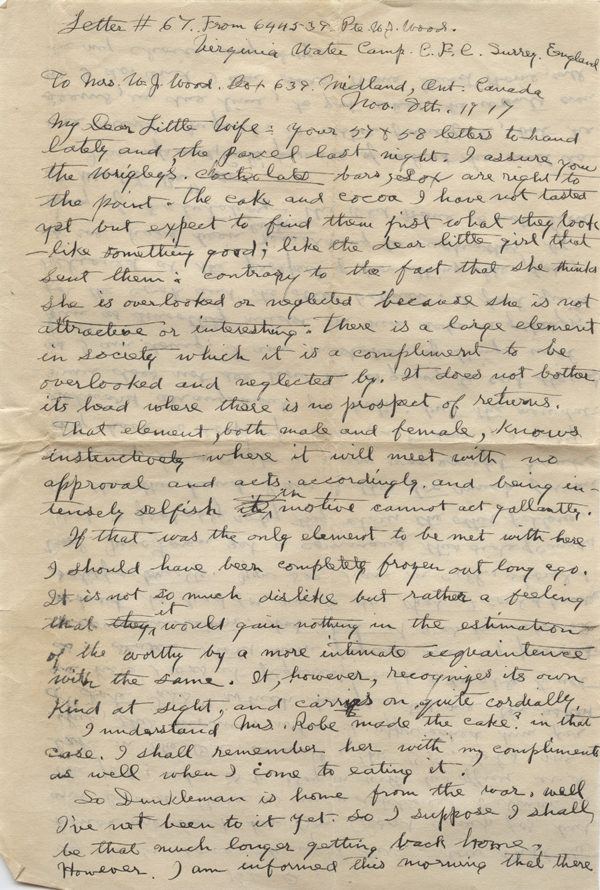 Letter # 67. From 644539. Pte W.J. Wood.
Virginia Water Camp. C.F.C. Surrey. England
To Mrs. W.J. Wood. Box 639. Midland, Ont. Canada
Nov. 8th. 1917
My Dear Little Wife: your 57 & 58 letters to hand
lately and the parcel last night. I assure you
the wriglegs. cocholate bars, & sox are right to
the point. The cake and cocoa I have not tasted
yet but expect to find them just what they look
- like something good; like the dear little girl that
sent them: contrary to the fact that she thinks
she is overlooked or neglected because she is not
attractive or interesting. There is a large element
in society which it is a compliment to be
overlooked and neglected by. It does not bother
its head where there is no prospect of returns.
That element, both male and female, knows
instinctively where it will meet with no
approval and acts accordingly. and being in-
tensely selfish its in motive cannot act gallantly.
If that was the only element to be met with here
I should have been completely frozen out long ago.
It is not so much dislike but rather a feeling
that they it would gain nothing in the estimation
of the worthy by a more intimate acquaintence
with the same. It, however, recognizes its own
kind at sight, and carrys on quite cordially.
I understand Mrs. Robe made the cake? in that
case. I shall remember her with my compliments
as well when I come to eating it.
So Dunkleman is home from the war, well
I've not been to it yet. So I suppose I shall
be that much longer getting back home,
However. I am informed this morning that there